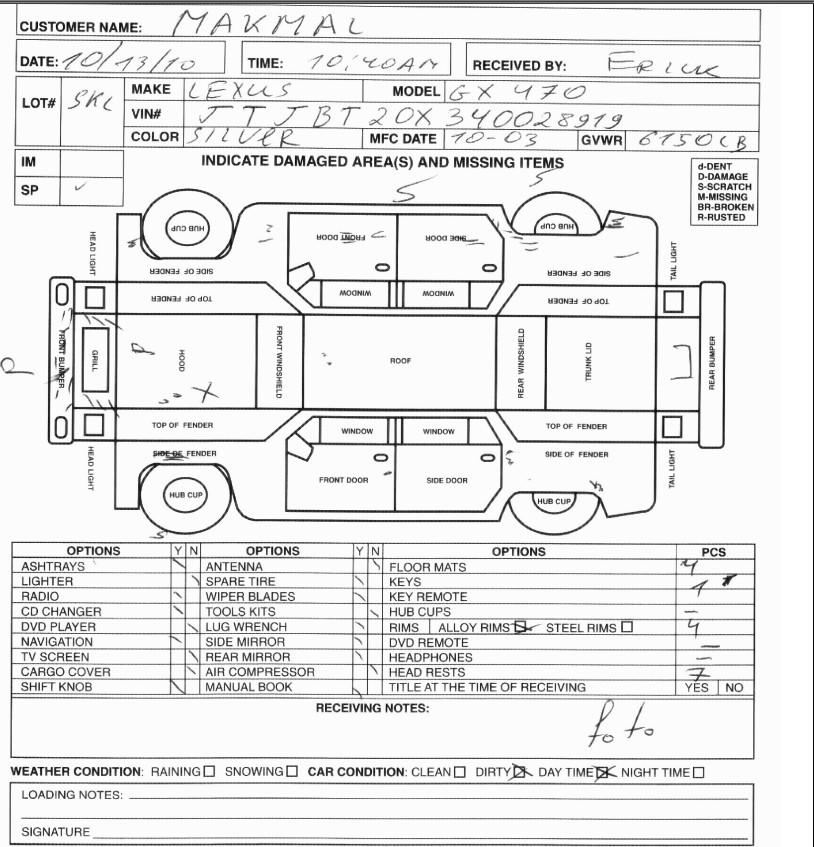 CUSTOMER NAME: MAKMAL
DATE: 10/13/10 TIME: 10:40AM RECEIVED BY: ERICK
LOT# SKL MAKE LEXUS MODEL GX 470
VIN# JTJBT20X340028919
COLOR SILVER MFC DATE 10-03 GVWR 6150LB
IM
SP ✓
INDICATE DAMAGED AREA(S) AND MISSING ITEMS
d-DENT
D-DAMAGE
S-SCRATCH
M-MISSING
BR-BROKEN
R-RUSTED
S S
HUB CUP FRONT DOOR SIDE DOOR HUB CUP
HEAD LIGHT SIDE OF FENDER SIDE OF FENDER TAIL LIGHT
TOP OF FENDER WINDOW WINDOW TOP OF FENDER
FRONT BUMPER GRILL d HOOD X FRONT WINDSHIELD ROOF REAR WINDSHIELD TRUNK LID REAR BUMPER
TOP OF FENDER WINDOW WINDOW TOP OF FENDER
HEAD LIGHT SIDE OF FENDER SIDE OF FENDER TAIL LIGHT
HUB CUP FRONT DOOR SIDE DOOR HUB CUP
S
OPTIONS Y N OPTIONS Y N OPTIONS PCS
ASHTRAYS ANTENNA FLOOR MATS 4
LIGHTER SPARE TIRE KEYS 1
RADIO WIPER BLADES KEY REMOTE
CD CHANGER TOOLS KITS HUB CUPS –
DVD PLAYER LUG WRENCH RIMS ALLOY RIMS ☒ STEEL RIMS ☐ 4
NAVIGATION SIDE MIRROR DVD REMOTE –
TV SCREEN REAR MIRROR HEADPHONES –
CARGO COVER AIR COMPRESSOR HEAD RESTS 7
SHIFT KNOB MANUAL BOOK TITLE AT THE TIME OF RECEIVING YES NO
RECEIVING NOTES:
foto
WEATHER CONDITION: RAINING ☐ SNOWING ☐ CAR CONDITION: CLEAN ☐ DIRTY ☒ DAY TIME ☒ NIGHT TIME ☐
LOADING NOTES:
SIGNATURE